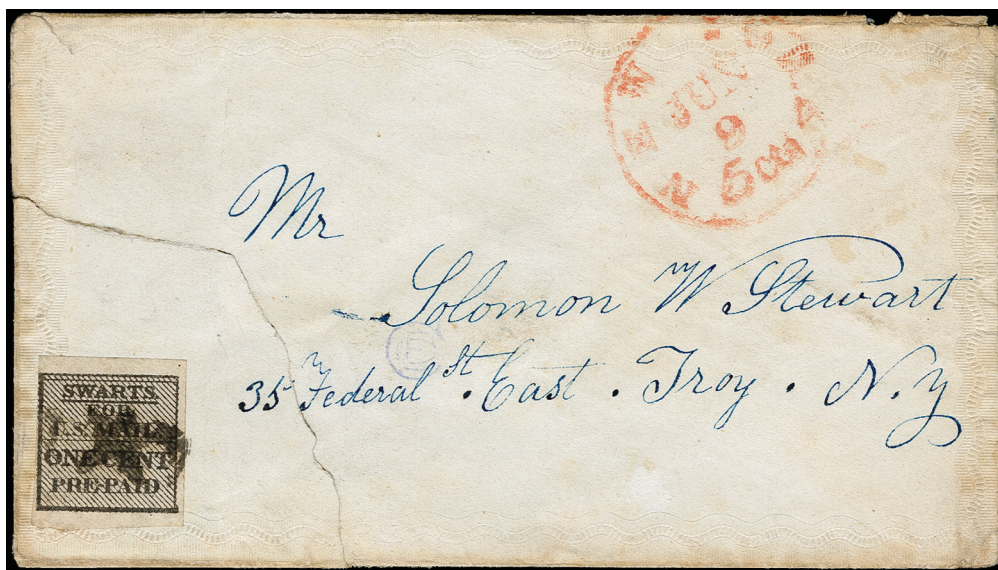 NEW
JUN
9
5 Cts
Mr
Solomon W Stewart
35 Federal St. East. Troy. N.Y
SWARTS
FOR
U.S. MAIL
ONE CENT
PRE-PAID